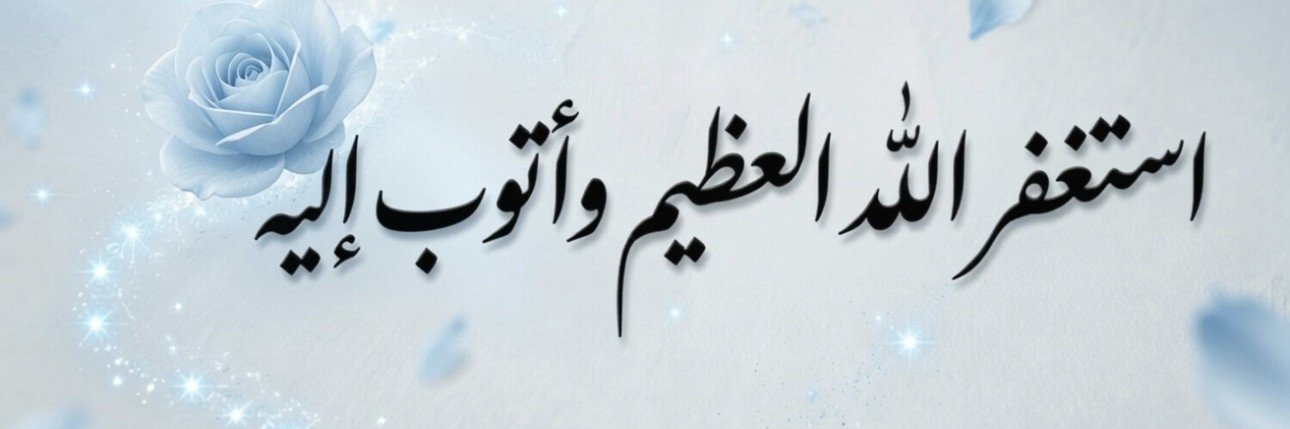 استغفر اللّٰه العظيم وأتوب إليه